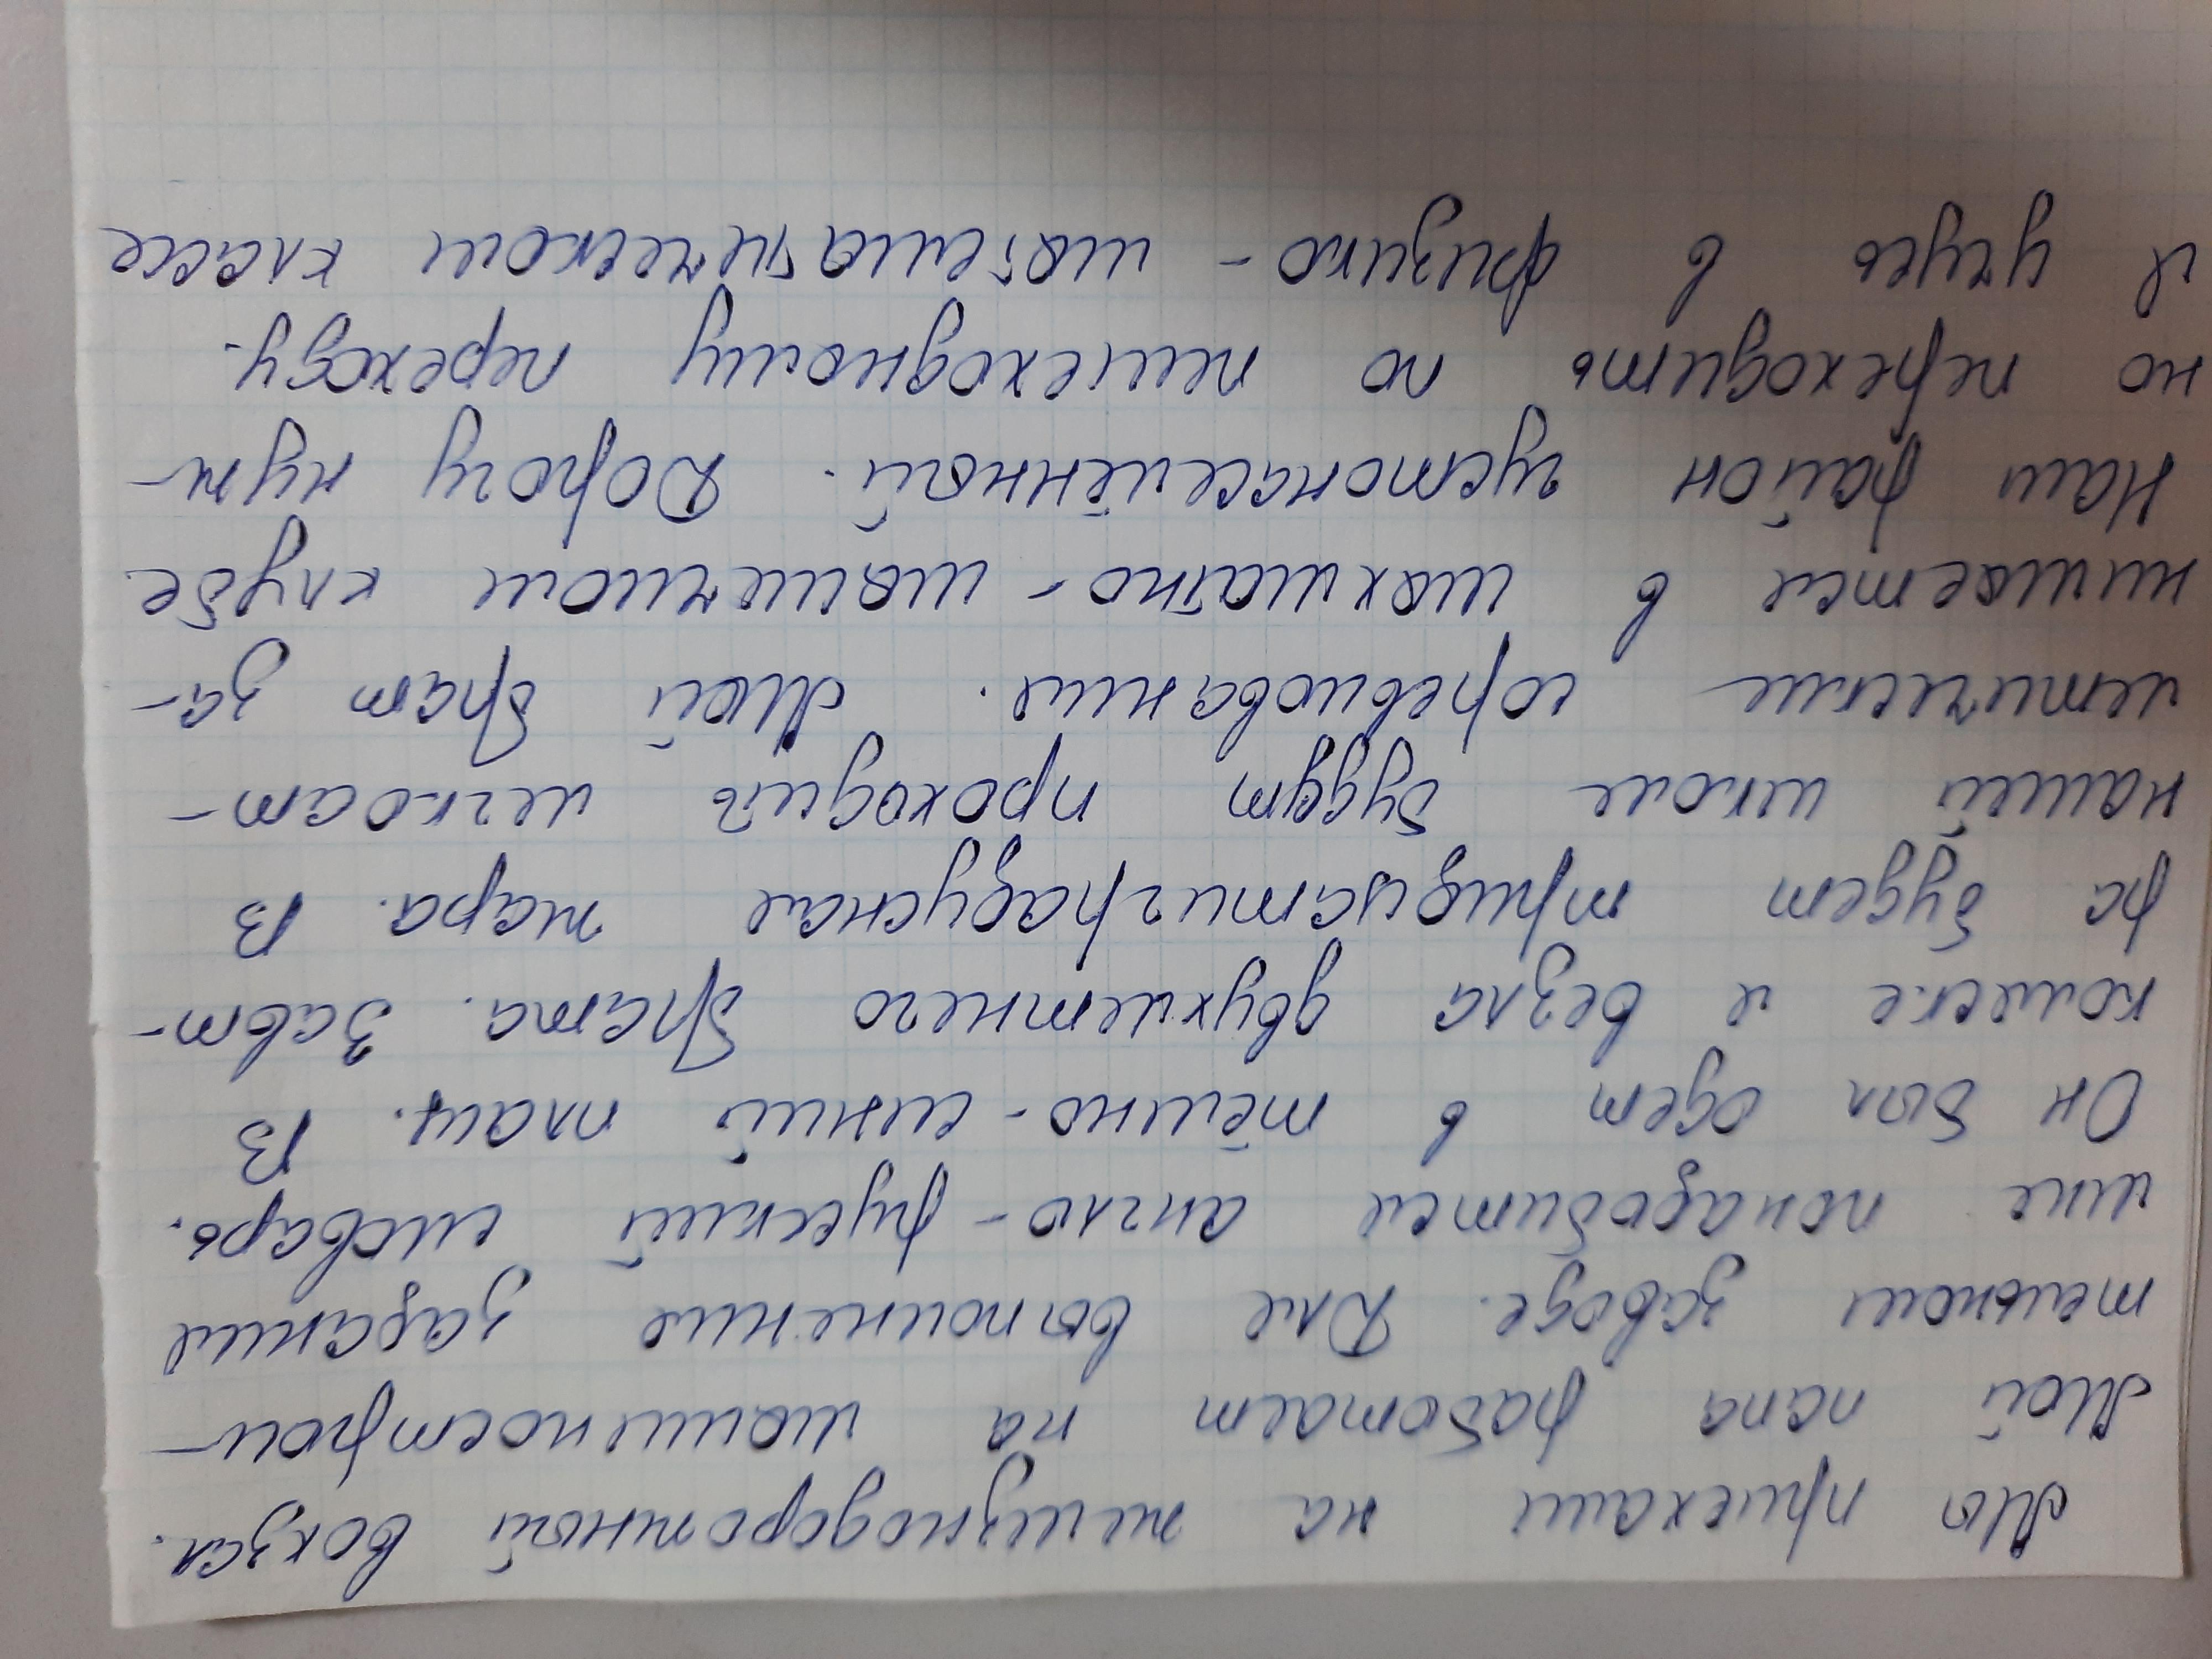 Мы приехали на железнодорожный вокзал.
Мой папа работает на машинострои-
тельном заводе. Для выполнения задания
мне понадобится англо-русский словарь.
Он был одет в тёмно-синий плащ. В
коляске я везла двухлетнего брата. Завт-
ра будет тридцатиградусная жара. В
нашей школе будут проходить легкоат-
летические соревнования. Мой брат за-
нимается в шахматно-шашечном клубе
Наш район густонаселённый. Дорогу нуж-
но переходить по пешеходному переходу.
Я учусь в физико-математическом классе